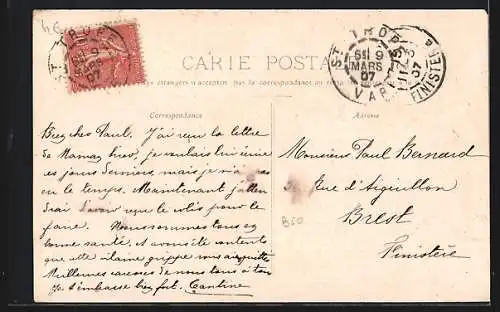 4€
ST TROP
9
07
ST. TROPEZ
9
MARS
07
VAR
07
FINISTERE
CARTE POSTALE
étrangers n'acceptent pas la correspondance au
Correspondance
Adresse
Bien cher Paul. J'ai reçu la lettre
de Maman hier, je voulais lui écrire
ces jours derniers mais je n'ai pas
eu le temps. Maintenant j'atten
drai d'avoir reçu le colis pour le
faire. Nous sommes tous en
bonne santé, et avons été contents
que cette vilaine grippe vous ait quittés
Meilleures caresses de nous tous à toi
Je t'embrasse bien fort.
Monsieur Paul Bernard
Rue d'Aiguillon
Brest
Finistère
B60